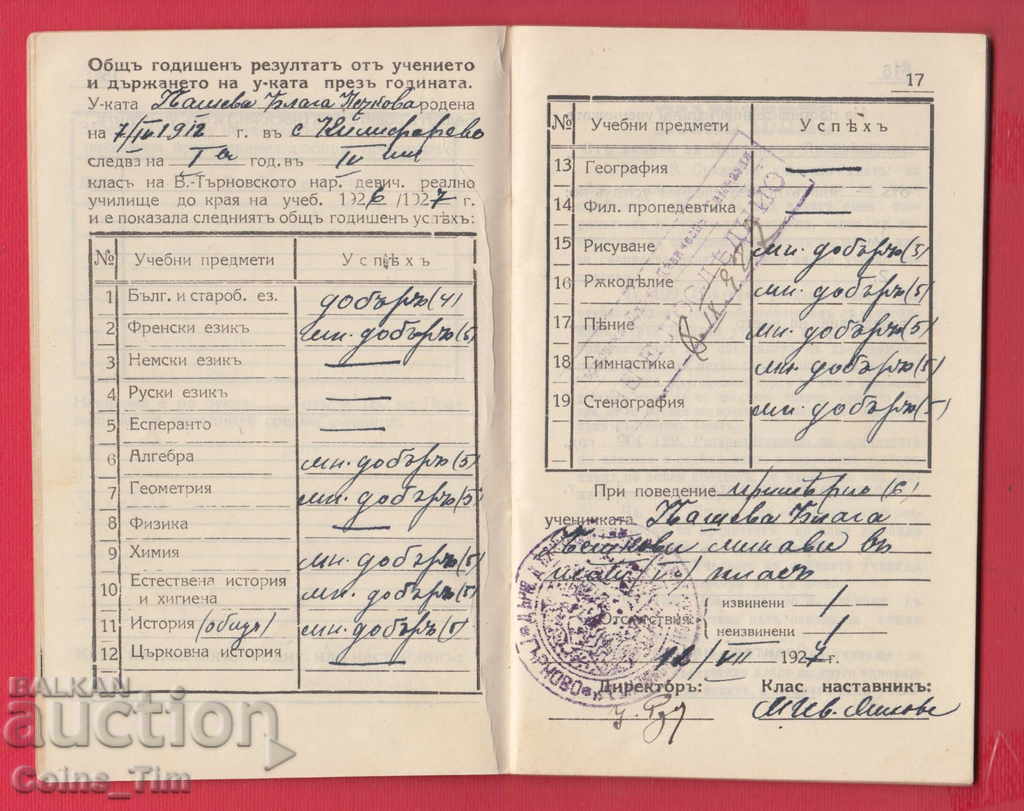 Общъ годишенъ резултатъ отъ учението
и държането на у-ката презъ годината.
У-ката Пашева Блага родена
на 7/IV 1912 г. въ с. Килифарево
следва на Iва год. въ IV
класъ на В.-Търновското нар. девич. реално
училище до края на учеб. 1926/1927 г.
и е показала следниятъ общъ годишенъ успѣхъ:
№ Учебни предмети Успѣхъ
1 Бълг. и староб. ез. добъръ (4)
2 Френски езикъ мн. добъръ (5)
3 Немски езикъ —
4 Руски езикъ —
5 Есперанто —
6 Алгебра мн. добъръ (5)
7 Геометрия мн. добъръ (5)
8 Физика —
9 Химия мн. добъръ (5)
10 Естествена история и хигиена мн. добъръ (5)
11 История (обща) мн. добъръ (5)
12 Църковна история —
17
№ Учебни предмети Успѣхъ
13 География —
14 Фил. пропедевтика —
15 Рисуване мн. добъръ (5)
16 Рѫкодѣлие мн. добъръ (5)
17 Пѣние мн. добъръ (5)
18 Гимнастика мн. добъръ (5)
19 Стенография мн. добъръ (5)
При поведение примѣрно (6)
ученичката Пашева Блага
минава въ
класъ
Отсѫтствия:
извинени 1
неизвинени 1
12/VII 1927 г.
Директоръ: Клас. наставникъ:
BALKAN
auction
Coins_Tim